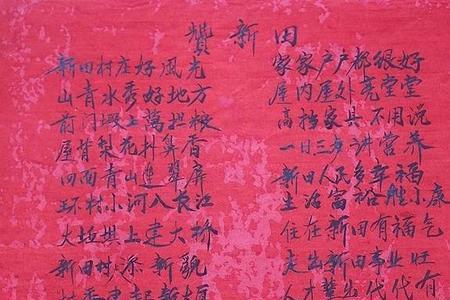 赞新田
新田村庄好風光
山青水秀好地方
前门垅上萬担粮
屋背梨花抖鼻香
四面青山進翠屏
环村小河八長江
大垃垻上建大桥
新田村添新貌
家家户户都很好
屋内屋外亮堂堂
高档家具不用说
一日三歺讲营养
新田人民多幸福
生活富裕胜小康
住在新田有福气
走出新田事业旺
人才辈出代代有